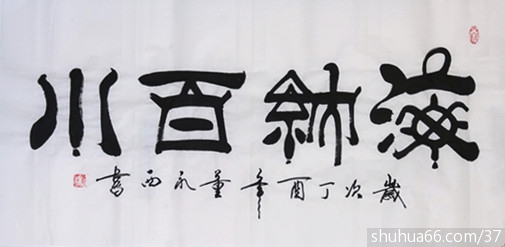 海納百川
歲次丁酉年董永西書
shuhua66.com/37